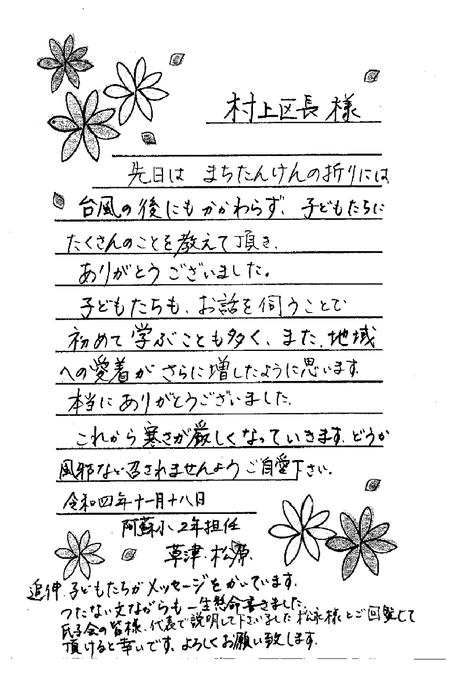 村上区長 様
先日は まちたんけんの折りには
台風の後にもかかわらず、子どもたちに
たくさんのことを教えて頂き、
ありがとうございました。
子どもたちも、お話を伺うことで
初めて学ぶことも多く、また、地域
への愛着がさらに増したように思います。
本当にありがとうございました。
これから寒さが厳しくなっていきます。どうか
風邪など召されませんようご自愛下さい。
令和四年十一月十八日
阿蘇小 2年担任
草津・松原
追伸、子どもたちがメッセージをかいています。
つたない文ながらも一生懸命書きました。
氏子会の皆様、代表で説明して下さいました松永様とご回覧して
頂けると幸いです。よろしくお願い致します。